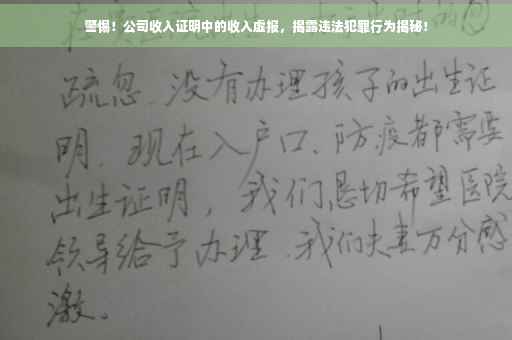 警惕！公司收入证明中的收入虚报，揭露违法犯罪行为揭秘！
疏忽、没有办理孩子的出生证
明、现在入户口、防疫都需要
出生证明，我们恳切希望医院
领导给予办理、我们夫妻万分感
激。